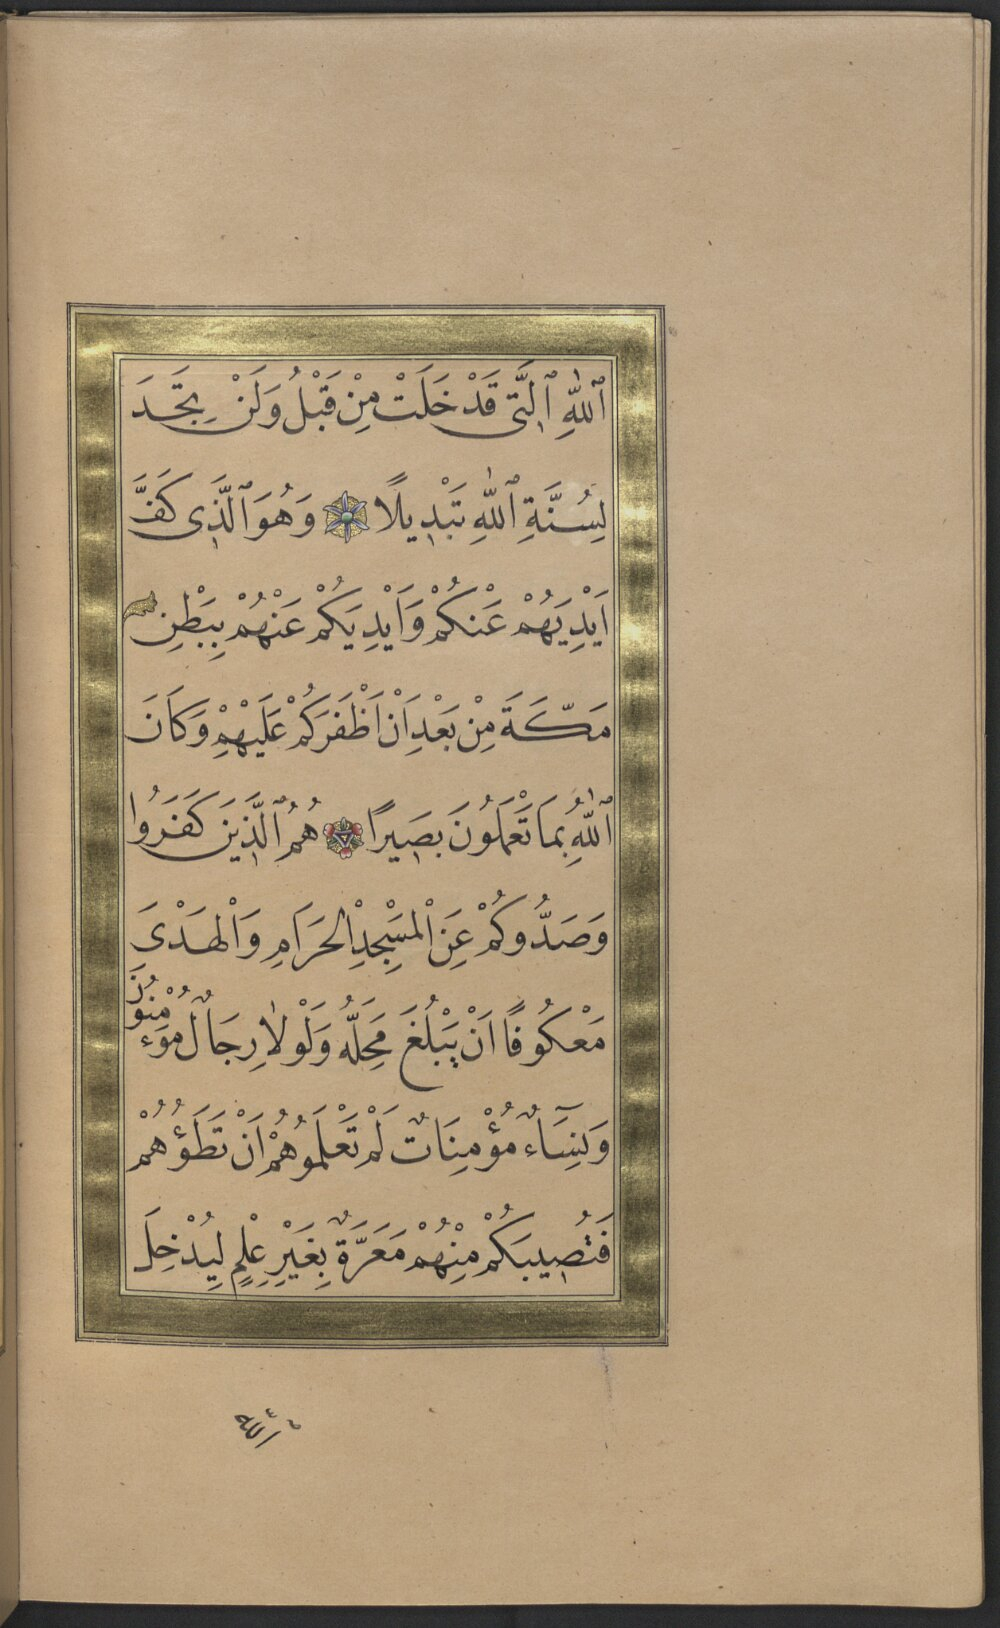 ٱللّٰهِ ٱلَّتٖى قَدْ خَلَتْ مِنْ قَبْلُ وَلَنْ تَجِدَ
لِسُنَّةِ ٱللّٰهِ تَبْدٖيلًا وَهُوَ ٱلَّذٖى كَفَّ
اَيْدِيَهُمْ عَنْكُمْ وَاَيْدِيَكُمْ عَنْهُمْ بِبَطْنِ
مَكَّةَ مِنْ بَعْدِ اَنْ اَظْفَرَكُمْ عَلَيْهِمْ وَكَانَ
ٱللّٰهُ بِمَا تَعْمَلُونَ بَصٖيرًا هُمُ ٱلَّذٖينَ كَفَرُوا
وَصَدُّوكُمْ عَنِ الْمَسْجِدِ الْحَرَامِ وَالْهَدْىَ
مَعْكُوفًا اَنْ يَبْلُغَ مَحِلَّهُ وَلَوْلَا رِجَالٌ مُؤْمِنُونَ
وَنِسَٓاءٌ مُؤْمِنَاتٌ لَمْ تَعْلَمُوهُمْ اَنْ تَطَؤُهُمْ
فَتُصٖيبَكُمْ مِنْهُمْ مَعَرَّةٌ بِغَيْرِ عِلْمٍ لِيُدْخِلَ
الله